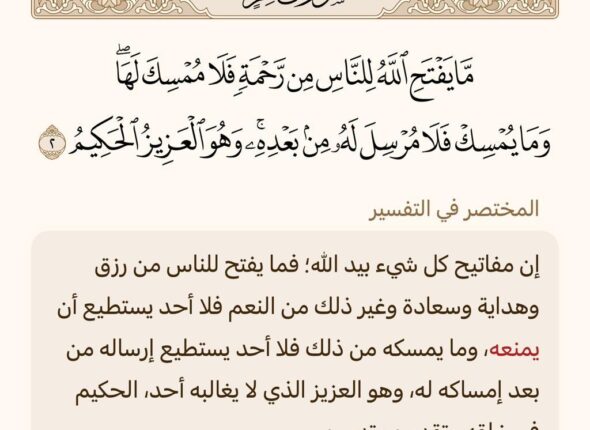 مَّا يَفْتَحِ ٱللَّهُ لِلنَّاسِ مِن رَّحْمَةٍ فَلَا مُمْسِكَ لَهَاۖ
وَمَا يُمْسِكْ فَلَا مُرْسِلَ لَهُۥ مِنۢ بَعْدِهِۦۚ وَهُوَ ٱلْعَزِيزُ ٱلْحَكِيمُ ٢
المختصر في التفسير
إن مفاتيح كل شيء بيد الله؛ فما يفتح للناس من رزق
وهداية وسعادة وغير ذلك من النعم فلا أحد يستطيع أن
يمنعه، وما يمسكه من ذلك فلا أحد يستطيع إرساله من
بعد إمساكه له، وهو العزيز الذي لا يغالبه أحد، الحكيم